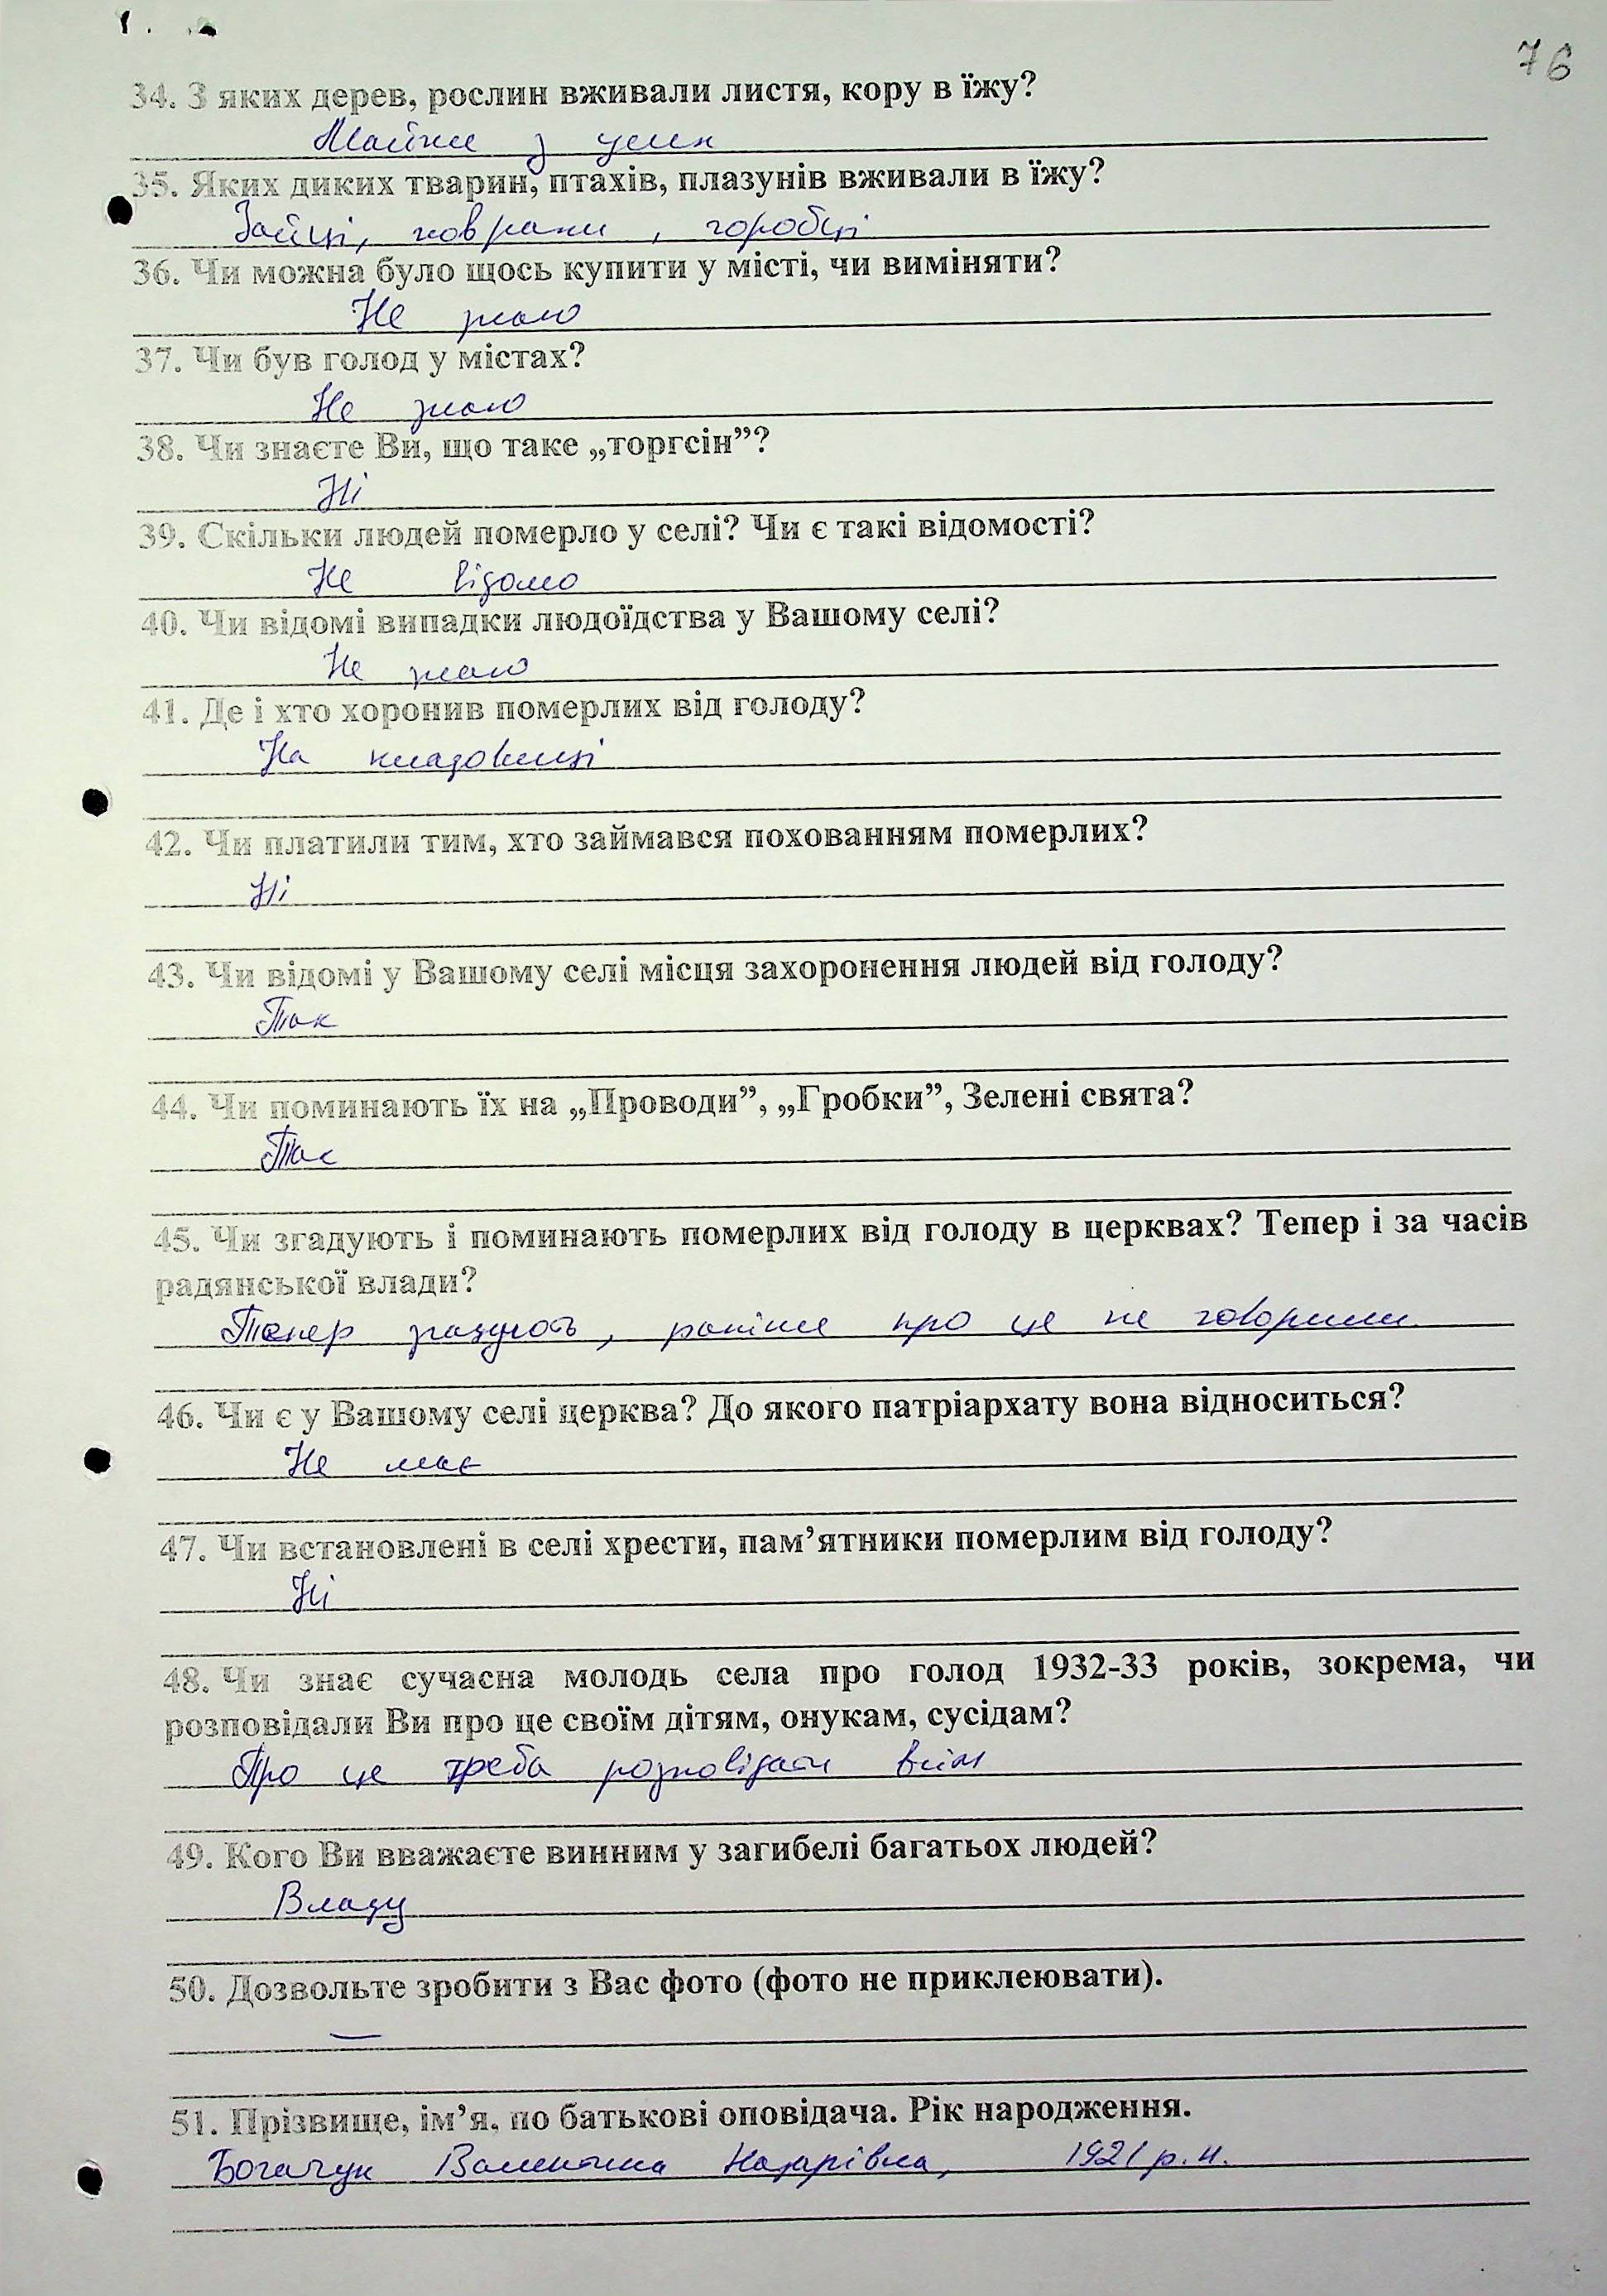 76
34. З яких дерев, рослин вживали листя, кору в їжу?
Майже з усіх
35. Яких диких тварин, птахів, плазунів вживали в їжу?
Зайці, ховрахи, горобці
36. Чи можна було щось купити у місті, чи виміняти?
Не знаю
37. Чи був голод у містах?
Не знаю
38. Чи знаєте Ви, що таке „торгсін”?
Ні
39. Скільки людей померло у селі? Чи є такі відомості?
Не відомо
40. Чи відомі випадки людоїдства у Вашому селі?
Не знаю
41. Де і хто хоронив померлих від голоду?
На кладовищі
42. Чи платили тим, хто займався похованням померлих?
Ні
43. Чи відомі у Вашому селі місця захоронення людей від голоду?
Так
44. Чи поминають їх на „Проводи”, „Гробки”, Зелені свята?
Так
45. Чи згадують і поминають померлих від голоду в церквах? Тепер і за часів
радянської влади?
Тепер згадують, раніше про це не говорили.
46. Чи є у Вашому селі церква? До якого патріархату вона відноситься?
Не має
47. Чи встановлені в селі хрести, пам’ятники померлим від голоду?
Ні
48. Чи знає сучасна молодь села про голод 1932-33 років, зокрема, чи
розповідали Ви про це своїм дітям, онукам, сусідам?
Про це треба розповідати всім
49. Кого Ви вважаєте винним у загибелі багатьох людей?
Владу
50. Дозвольте зробити з Вас фото (фото не приклеювати).
—
51. Прізвище, ім’я, по батькові оповідача. Рік народження.
Богачук Валентина Назарівна, 1921 р.н.